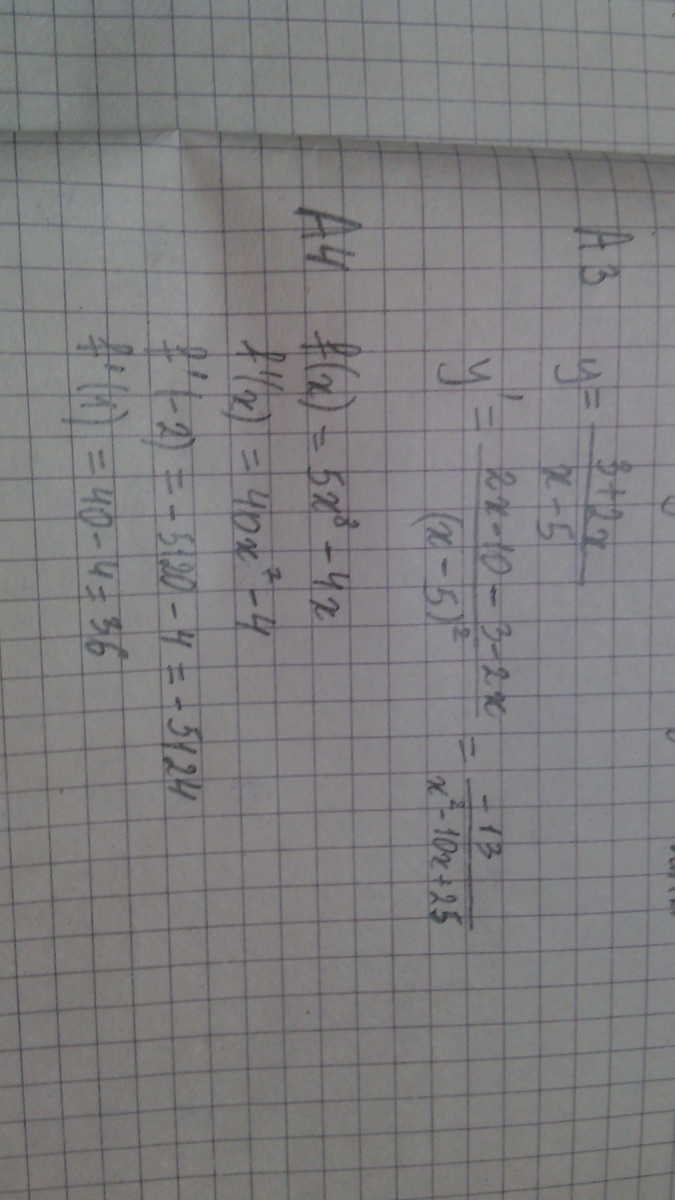 A3 y = (3+2x)/(x-5)
y' = (2x-10-3-2x)/(x-5)² = (-13)/(x²-10x+25)
A4 f(x) = 5x⁸-4x
f'(x) = 40x⁷-4
f'(-2) = -5120-4 = -5124
f'(1) = 40-4 = 36